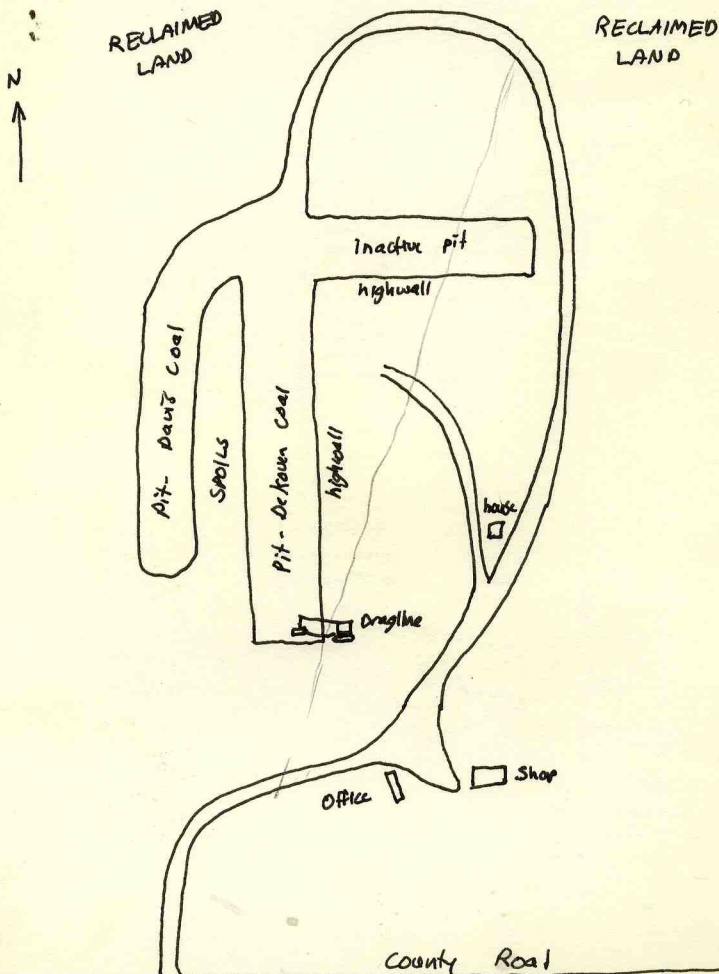 RECLAIMED
LAND
RECLAIMED
LAND
N
Inactive pit
highwall
Pit- Davis Coal
SPOILS
Pit- DeKoven Coal
highwall
house
Dragline
Office
Shop
County Road